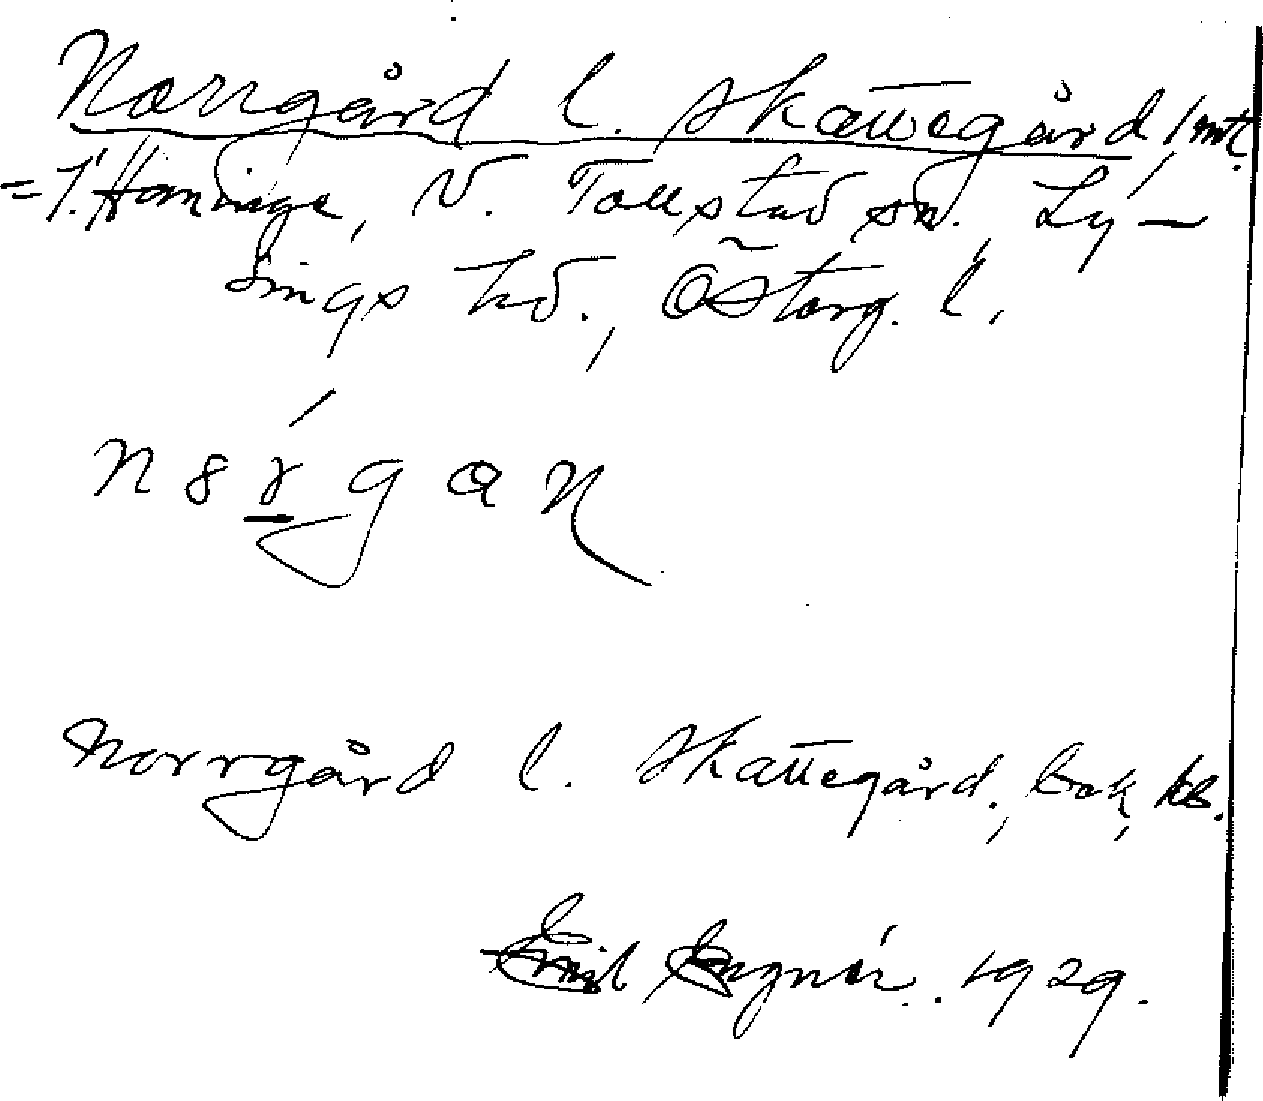 Norrgård l. Skattegård, 1 mt.
= 1. Haninge, V. Tollstad sn. Ly-
sings hd., Östarg. l.
Norrgård l. Skattegård, bok, kb.
Emil 1929.